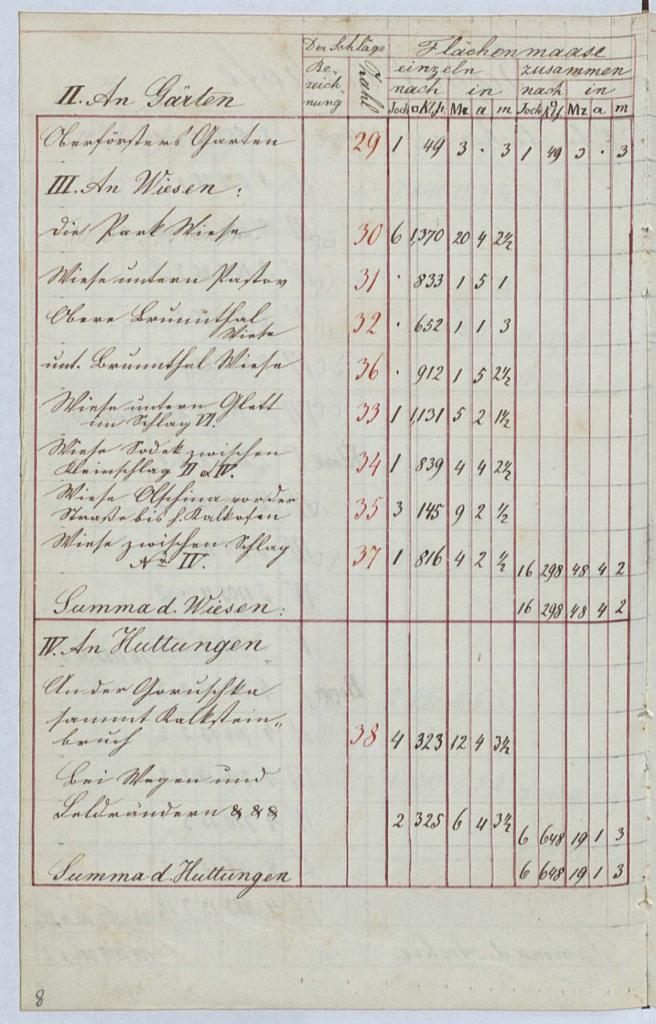 Der Schläge Flächenmaase
Be-
zeich-
nung Zahl einzeln zusammen
nach in nach in
II. An Gärten Joch □Klft. Mz a m Joch □Klf Mz a m
Oberförsters Garten 29 1 49 3 · 3 1 49 3 · 3
III. An Wiesen:
die Park Wiese 30 6 1,370 20 4 2½
Wiese untern Pastor 31 · 833 1 5 1
Obere Brunnthal
Wiese 32 · 652 1 1 3
unt. Brunnthal Wiese 36 · 912 1 5 2½
Wiese untern Glett
im Schlag VI. 33 1 1,131 5 2 1½
Wiese Sodek zwischen
Kleinschlag II & IV. 34 1 839 4 4 2½
Wiese Olschina vor der
Straße bis h. Kalkofen 35 3 145 9 2 ½
Wiese zwischen Schlag
Nr. IV. 37 1 816 4 2 ½ 16 298 48 4 2
Summa d. Wiesen: 16 298 48 4 2
IV. An Huttungen
An der Goruschka
sammt Kalkstein„
bruch 38 4 323 12 4 3½
Bei Wegen und
Feldrändern & & & 2 325 6 4 3½ 6 648 19 1 3
Summa d. Huttungen 6 648 19 1 3
8